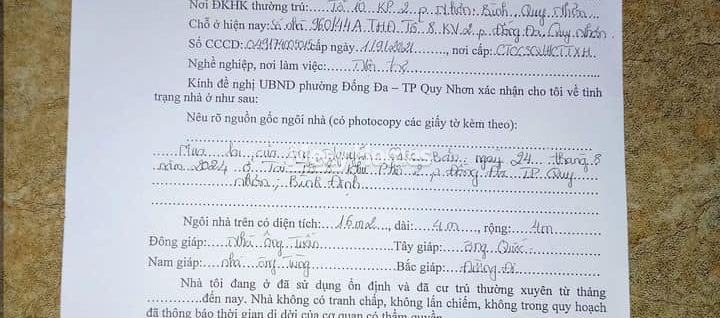 Nơi ĐKHK thường trú: Tổ 10 KP 2 p. Nhơn Bình, Quy Nhơn
Chỗ ở hiện nay: Số nhà 960/44A THĐ Tổ 8 KV2 p. Đống Đa, Quy Nhơn
Số CCCD: cấp ngày 1/9/2021, nơi cấp: CTCCSQLHCTTXH
Nghề nghiệp, nơi làm việc:
Kính đề nghị UBND phường Đống Đa – TP Quy Nhơn xác nhận cho tôi về tình
trạng nhà ở như sau:
Nêu rõ nguồn gốc ngôi nhà (có photocopy các giấy tờ kèm theo):
Mua lại của ông Bán ngày 24 tháng 8
năm 2024 ở Tại Tổ 8 Khu Phố 2 p. Đống Đa TP Quy
nhơn, Bình Định
Ngôi nhà trên có diện tích: 16m2, dài: 4m, rộng: 4m
Đông giáp: nhà ông Tuấn Tây giáp: ông Quốc
Nam giáp: nhà ông Tùng Bắc giáp: Đường Đi
Nhà tôi đang ở đã sử dụng ổn định và đã cư trú thường xuyên từ tháng
đến nay. Nhà không có tranh chấp, không lấn chiếm, không trong quy hoạch
đã thông báo thời gian di dời của cơ quan có thẩm quyền